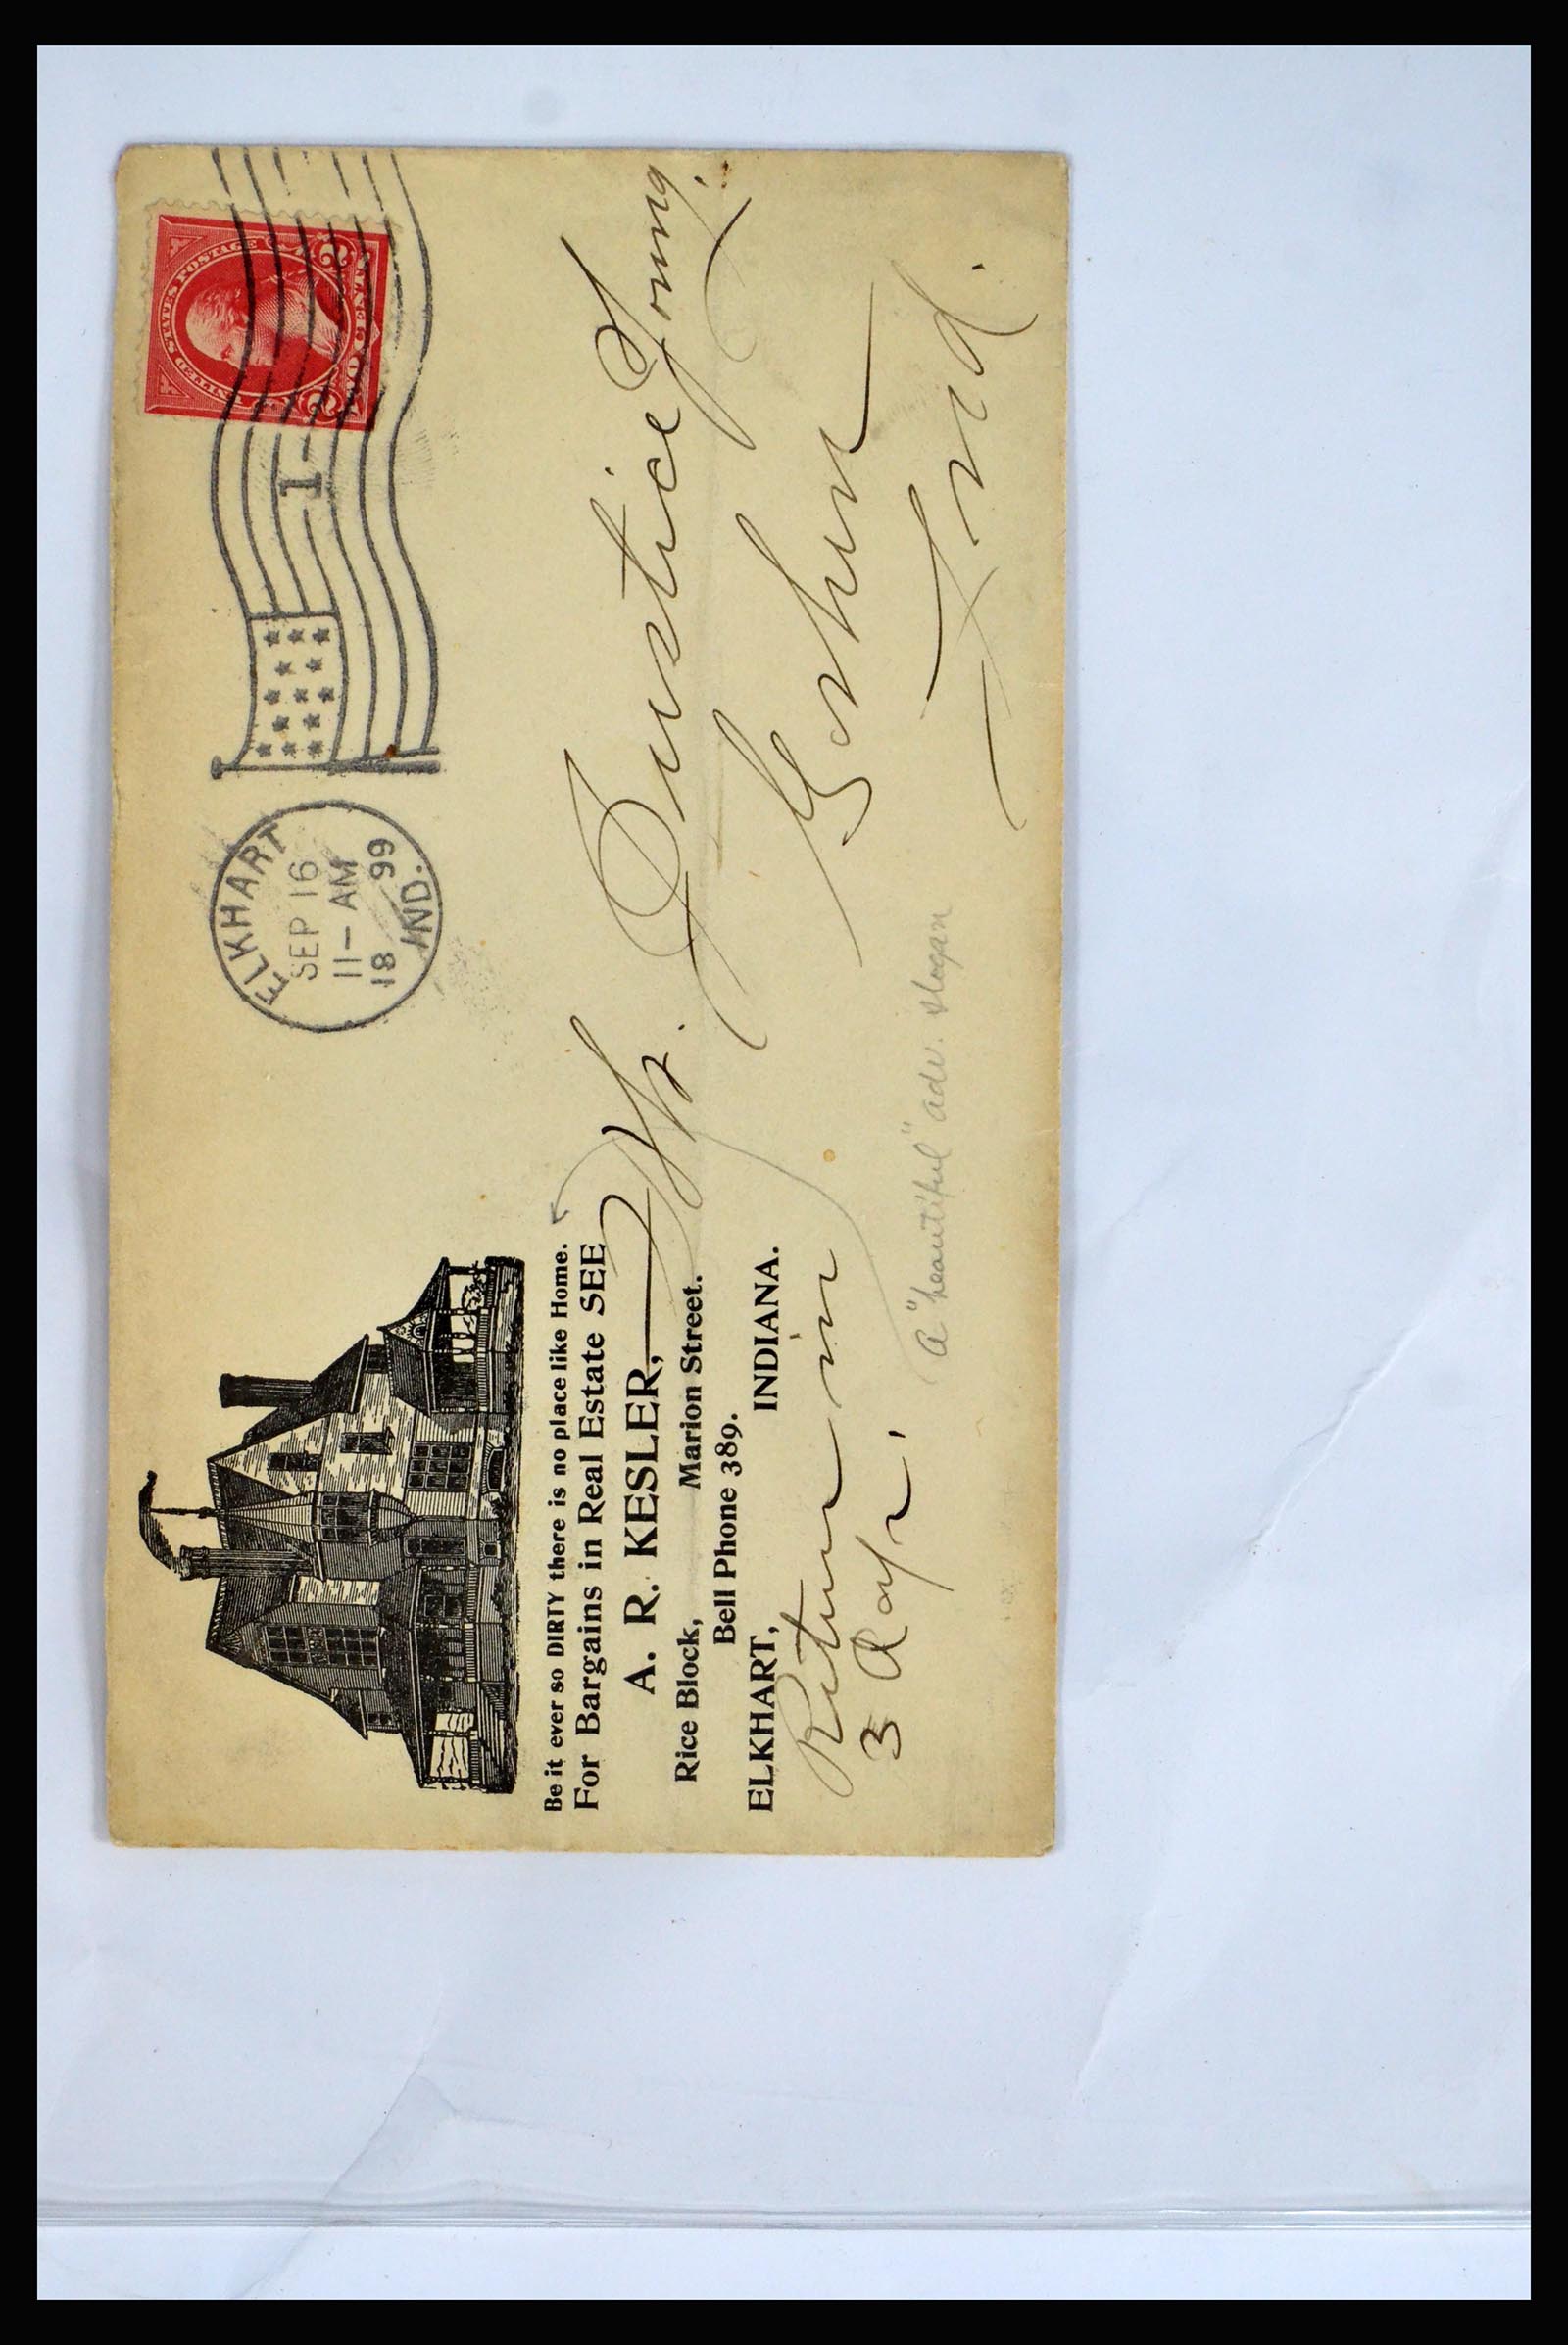 ELKHART
SEP 16
11-AM
18 99
IND.
1
UNITED STATES POSTAGE
2 2
TWO CENTS
Be it ever so DIRTY there is no place like Home.
For Bargains in Real Estate SEE
A. R. KESLER,
Rice Block, Marion Street.
Bell Phone 389.
ELKHART, INDIANA.
Return in
3 days.
Mr. Justice Young.
Goshen
Ind.
A "beautiful" adv. slogan